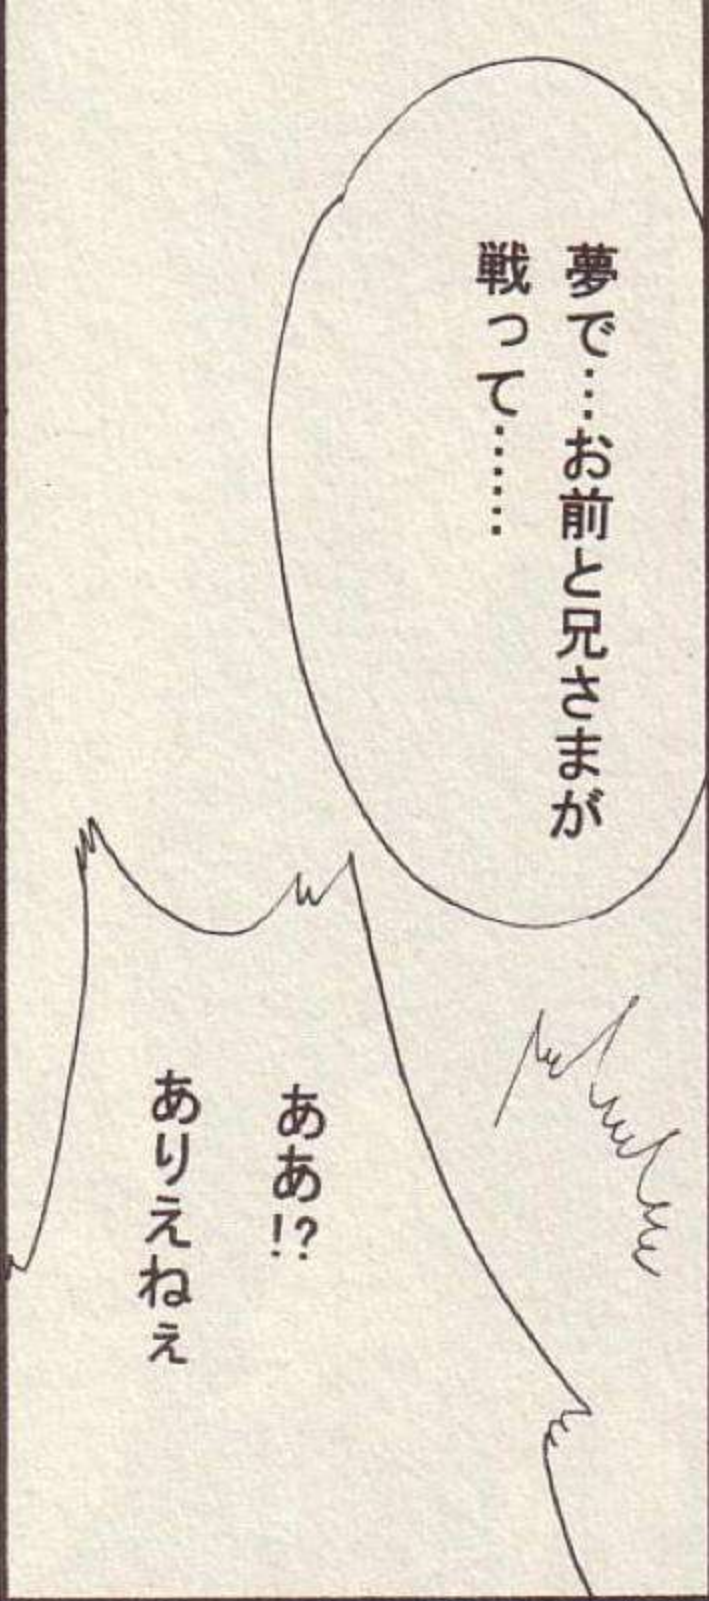 夢で…お前と兄さまが
戦って……
ああ!?
ありえねぇ